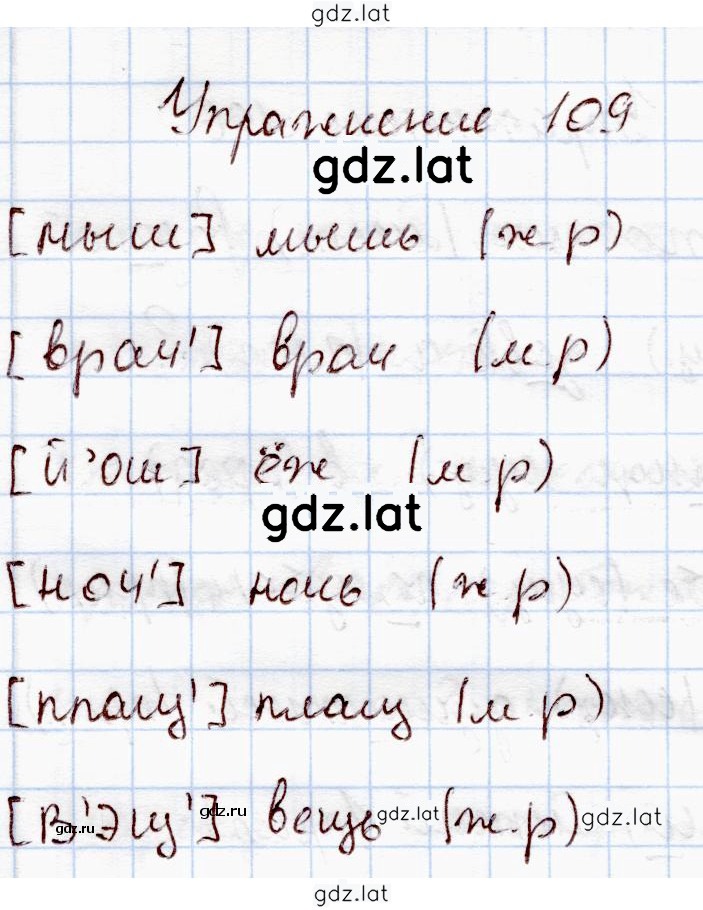 gdz.lat
Упражнение 109
gdz.lat
[мыш] мышь (ж.р)
[врач'] врач (м.р)
[й'ош] ёж (м р)
gdz.lat
[ноч'] ночь (ж р)
[плащ'] плащ (м р)
[в'эщ'] вещь (ж.р)
gdz.ru gdz.lat gdz.lat
gdz.lat